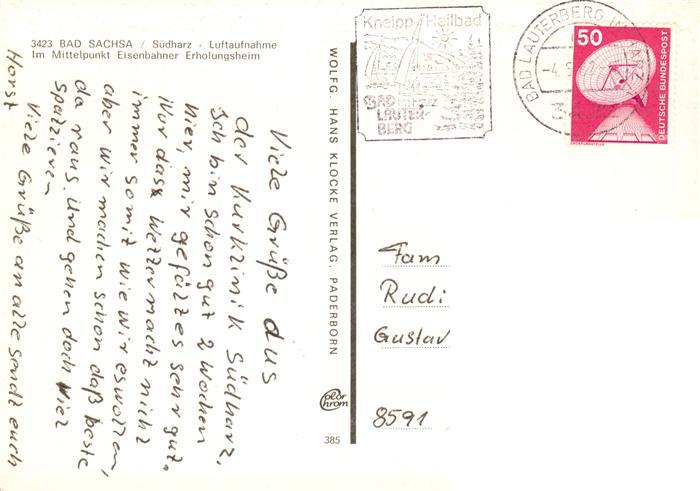 3423 BAD SACHSA / Südharz - Luftaufnahme
Im Mittelpunkt Eisenbahner Erholungsheim
Viele Grüße aus
der Kurklinik Südharz,
Ich bin schon gut 2 Wochen
hier, mir gefällt es sehr gut.
Nur dass Wetter macht nicht
immer so mit wie wir es wollen,
aber wir machen schon daß beste
da raus. und gehen doch viel
spazieren
Viele Grüße an alle sendt euch
Horst
WOLFG. HANS KLOCKE VERLAG, PADERBORN
Color
Chrom
385
Kneipp-Heilbad
BAD
LAUTER-
BERG
BAD LAUTERBERG IM HARZ
-4.
50
DEUTSCHE BUNDESPOST
ERDEFUNKSTELLE
Fam
Rudi
Gustav
8591